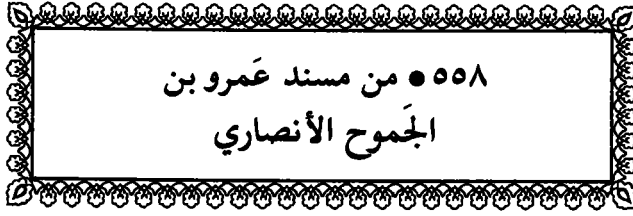 ٥٥٨ ● من مسند عَمرو بن
الجَموح الأنصاري